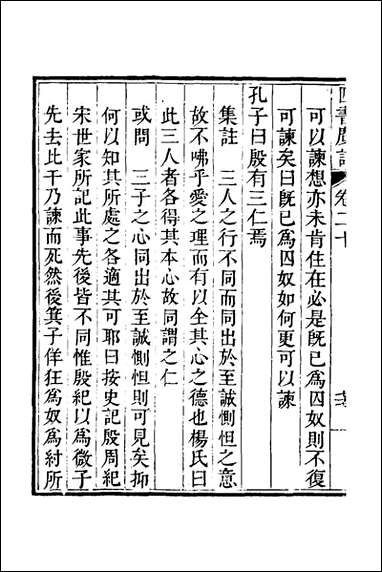 卷二十
可以諫想亦未肯住在必是旣已爲囚奴則不復
可諫矣曰旣已爲囚奴如何更可以諫
孔子曰殷有三仁焉
集註　三人之行不同而同出於至誠惻怛之意
故不咈乎愛之理而有以全其心之德也楊氏曰
此三人者各得其本心故同謂之仁
或問　三子之心同出於至誠惻怛則可見矣抑
何以知其所處之各適其可耶曰按史記殷周紀
宋世家所記此事先後皆不同惟殷紀以爲微子
先去比干乃諫而死然後箕子佯狂爲奴爲紂所